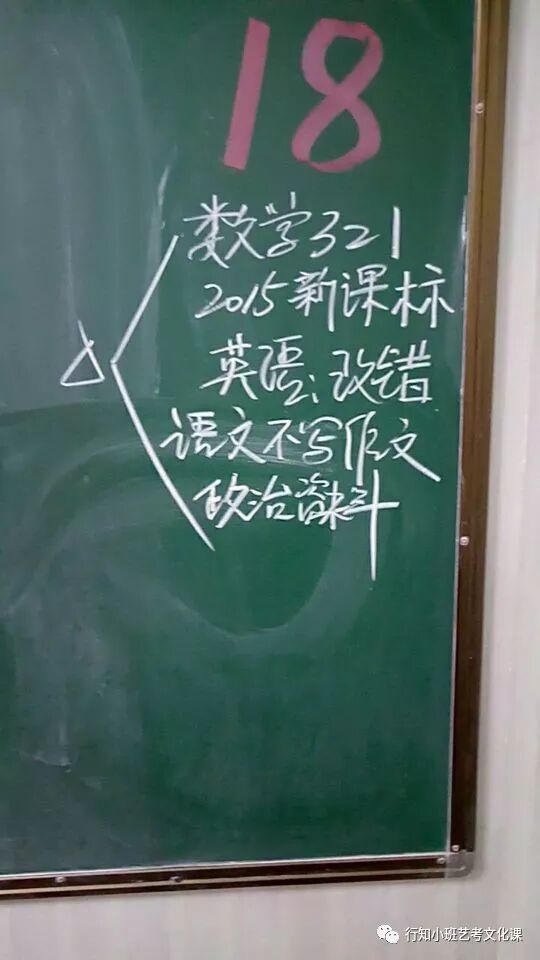 18
数学321
2015新课标
英语:改错
语文不写作文
政治资料
行知小班艺考文化课